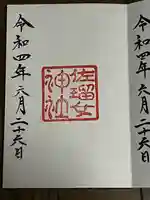 令和四年六月二十六日
佐瑠女
神社
令和四年六月二十六日